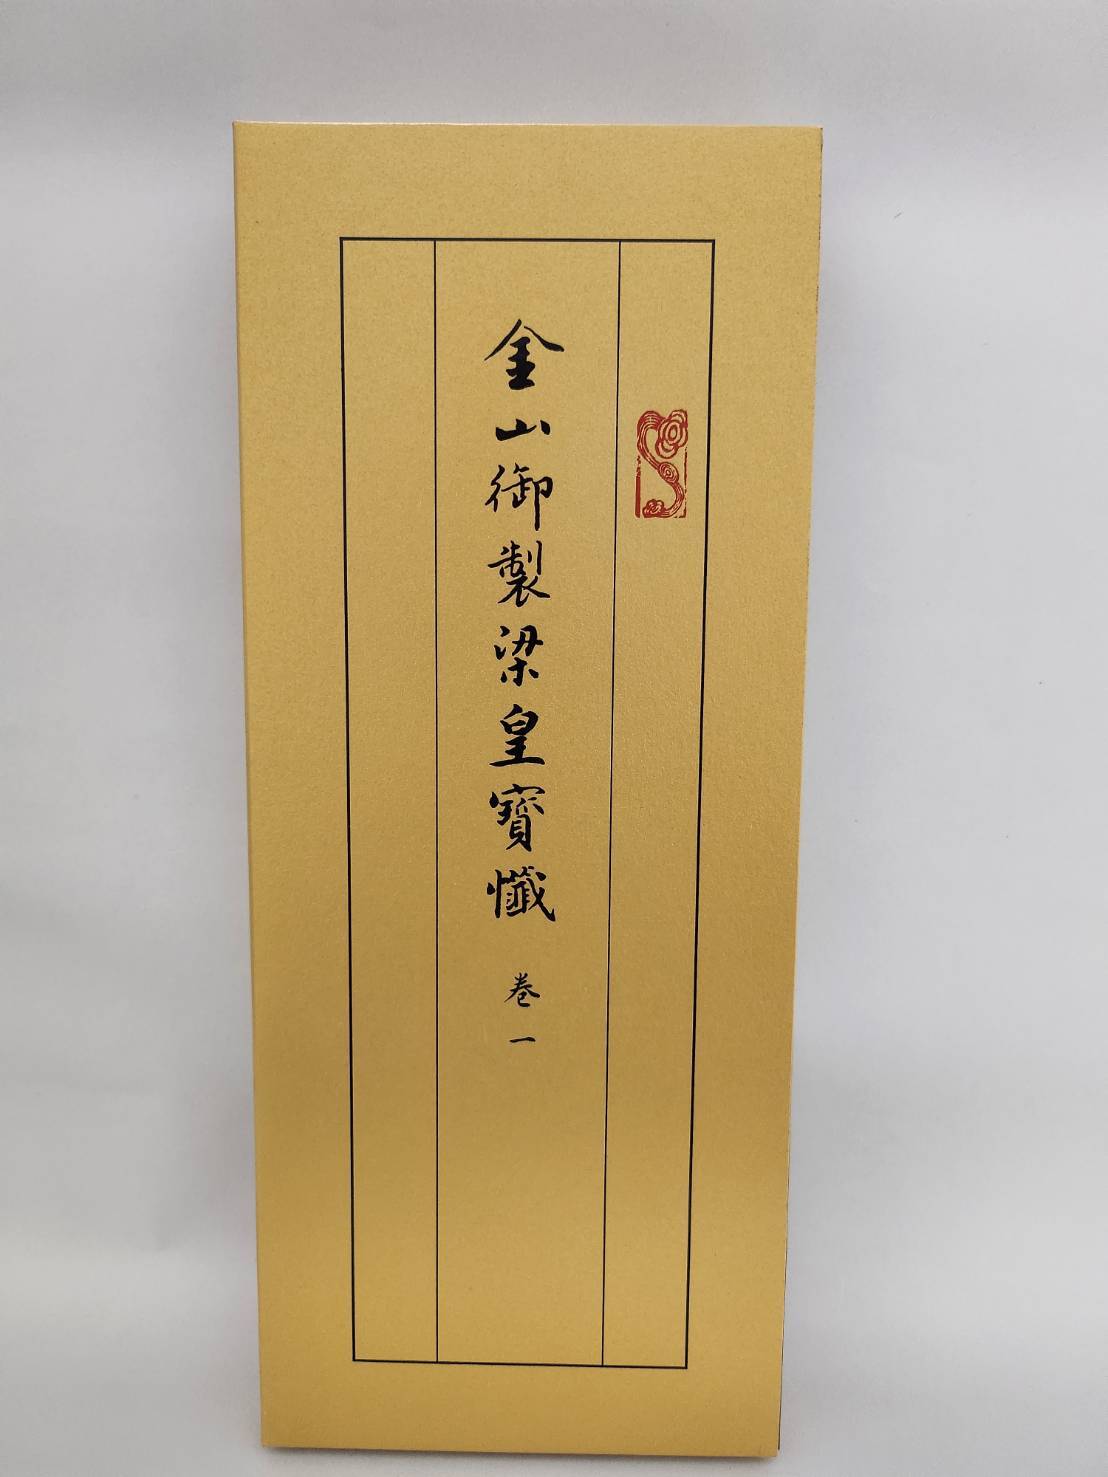 金山御製梁皇寶懺 卷一